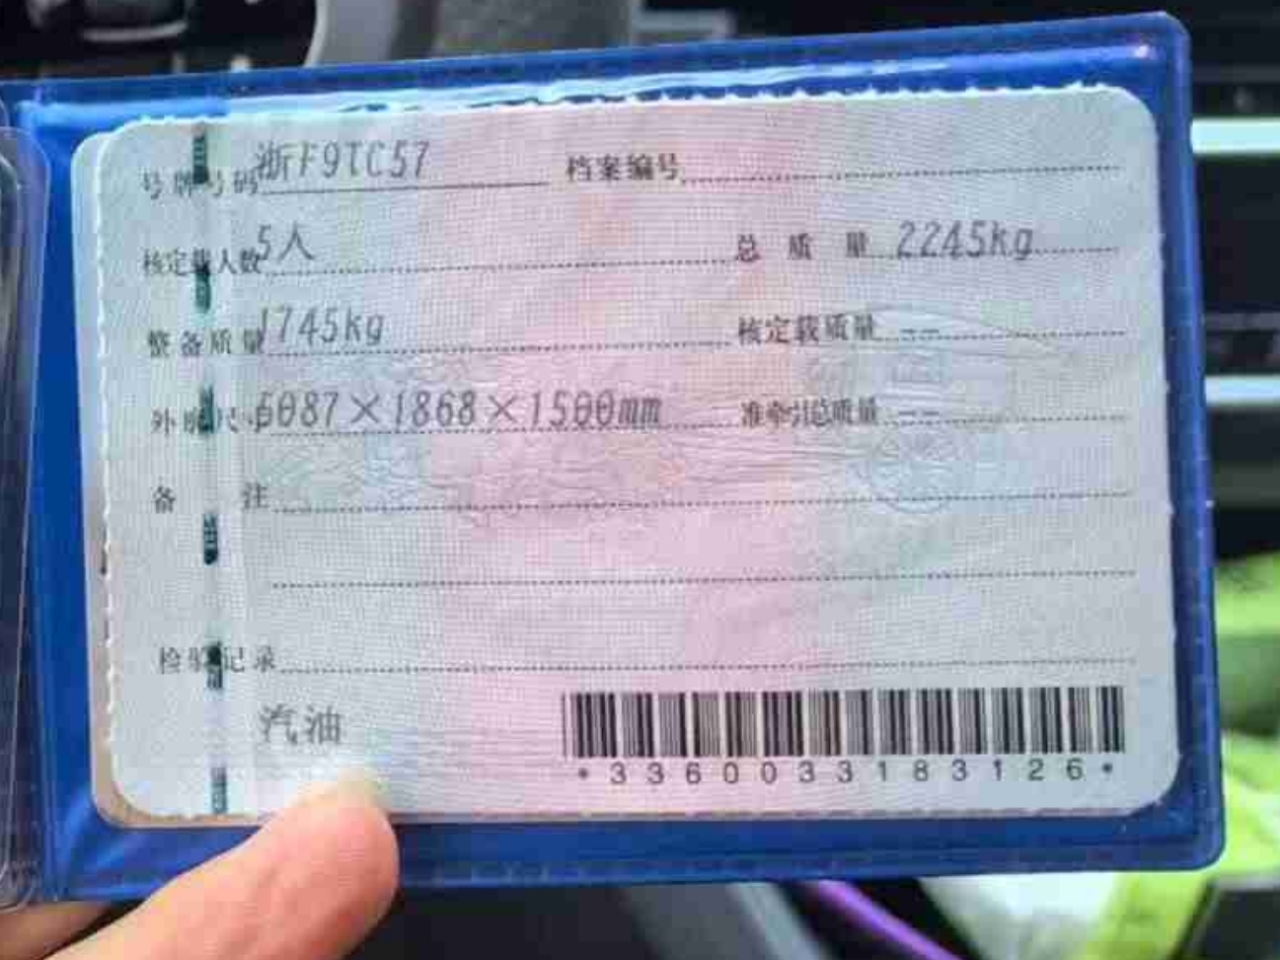 号牌号码 浙F9TC57 档案编号
核定载人数 5人 总质量 2245kg
整备质量 1745kg 核定载质量 --
外廓尺寸 5087×1868×1500mm 准牵引总质量 --
备注
检验记录
汽油
*336003318 3126*